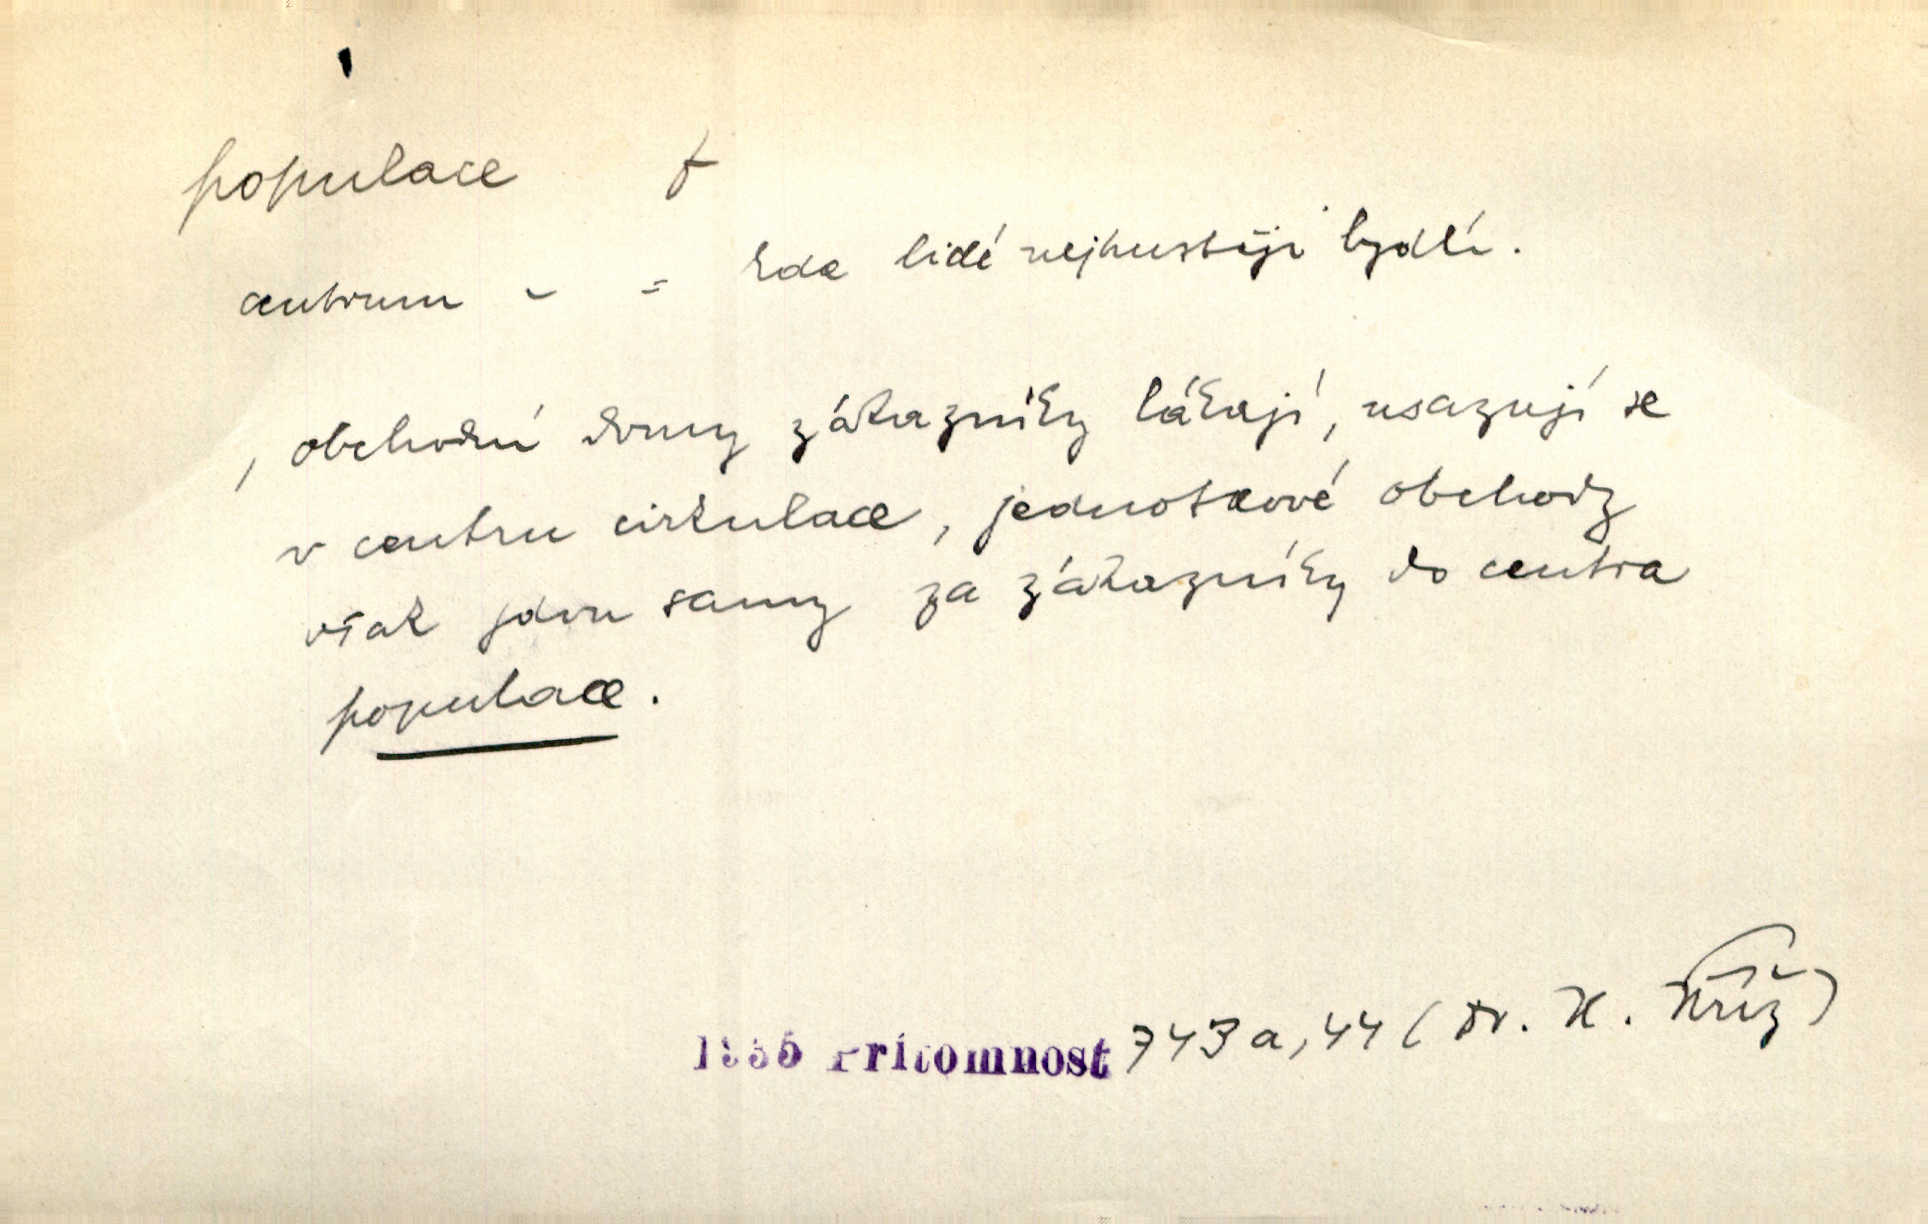 populace f
centrum - = kde lidé nejhustěji bydlí.
, obchodní domy zákazníky lákají, usazují se
v centru cirkulace, jednotkové obchody
však jdou samy za zákazníky do centra
populace.
1935 Přítomnost 743a, 44 (Dr. K. Kříž)